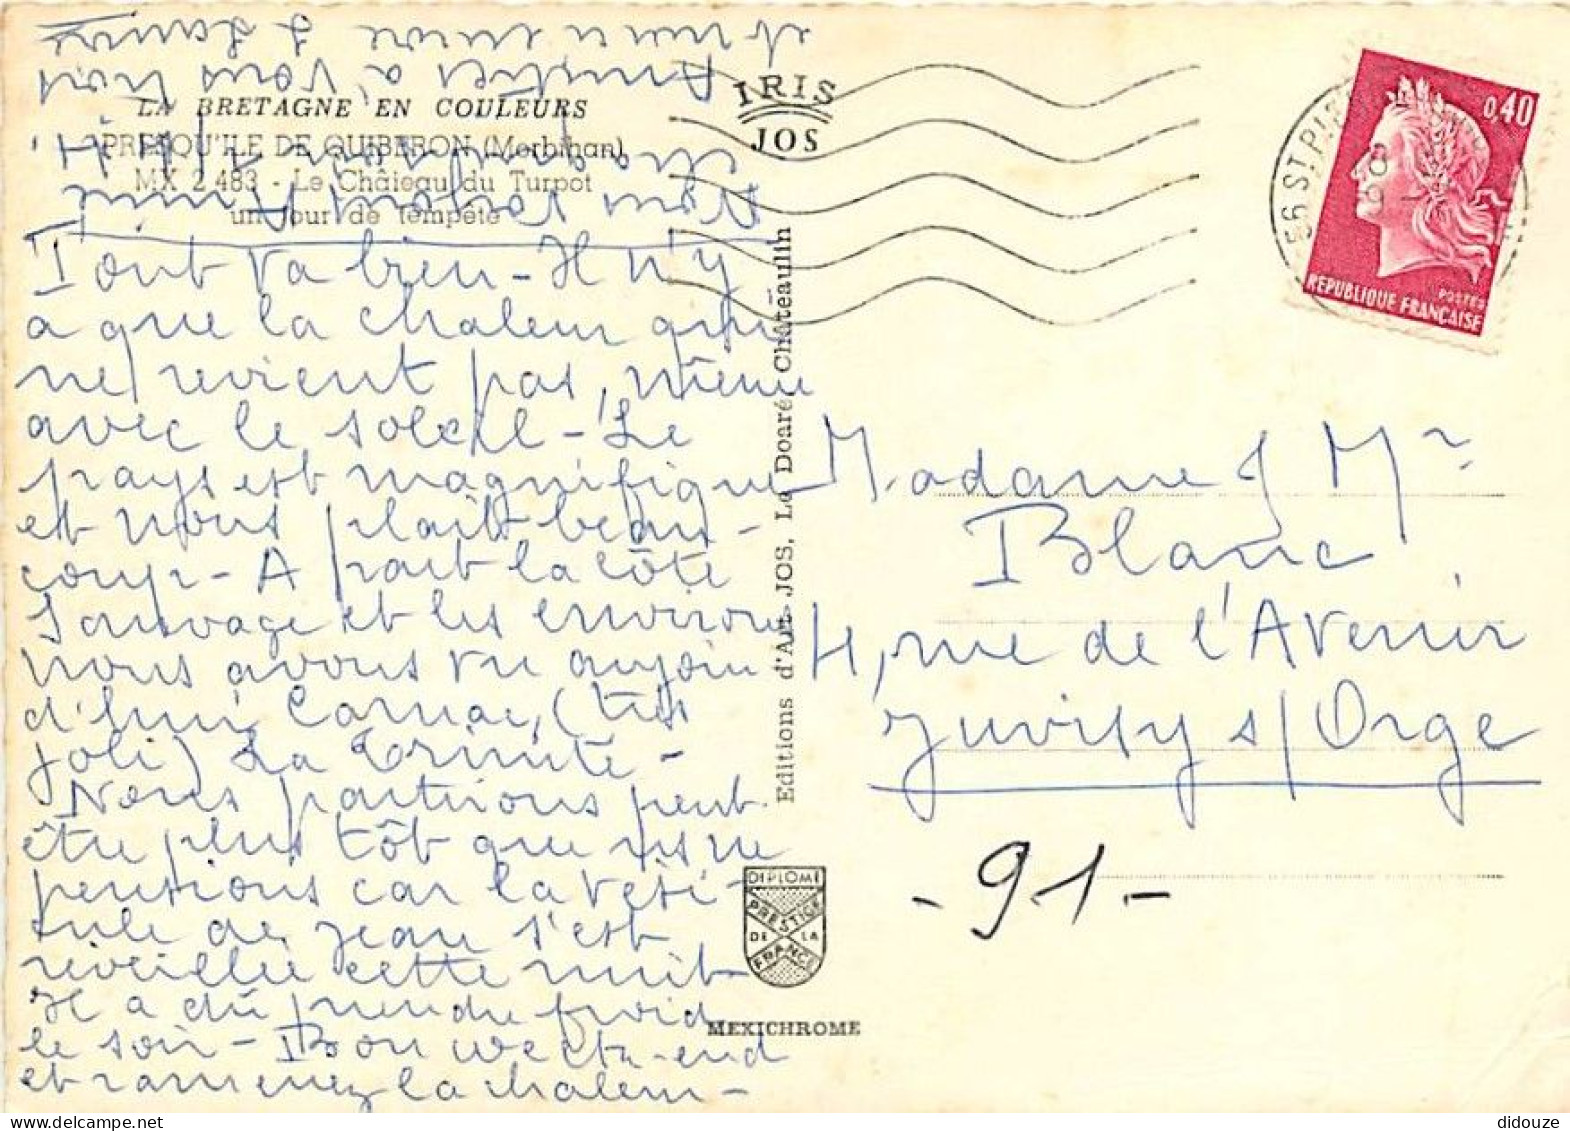 LA BRETAGNE EN COULEURS
PRESQU'ILE DE QUIBERON (Morbihan)
MX 2 483 - Le Château du Turpot
un jour de tempête
Tout va bien - Il n'y
a que la chaleur qui
ne revient pas, même
avec le soleil - Le
pays est magnifique
et nous plait beau-
coup - A part la côte
Sauvage et les environs
nous avons vu aujour
d'hui Carnac, (très
joli) La Trinité -
Nous partirons peut
être plus tôt que
pensions car la
de Jean s'est
réveillée cette nuit
Il a dû prendre froid
le soir - Bon week-end
et ramenez la chaleur -
Amitiés à vous trois
et
IRIS
JOS
Editions d'Art JOS, Le Doaré, Châteaulin
DIPLOME
PRESTIGE
DE LA
FRANCE
MEXICHROME
56 ST PI
0,40
POSTES
REPUBLIQUE FRANÇAISE
Madame & Mr
Blanc
4, rue de l'Avenir
Juvisy s/Orge
- 91 -
didouze